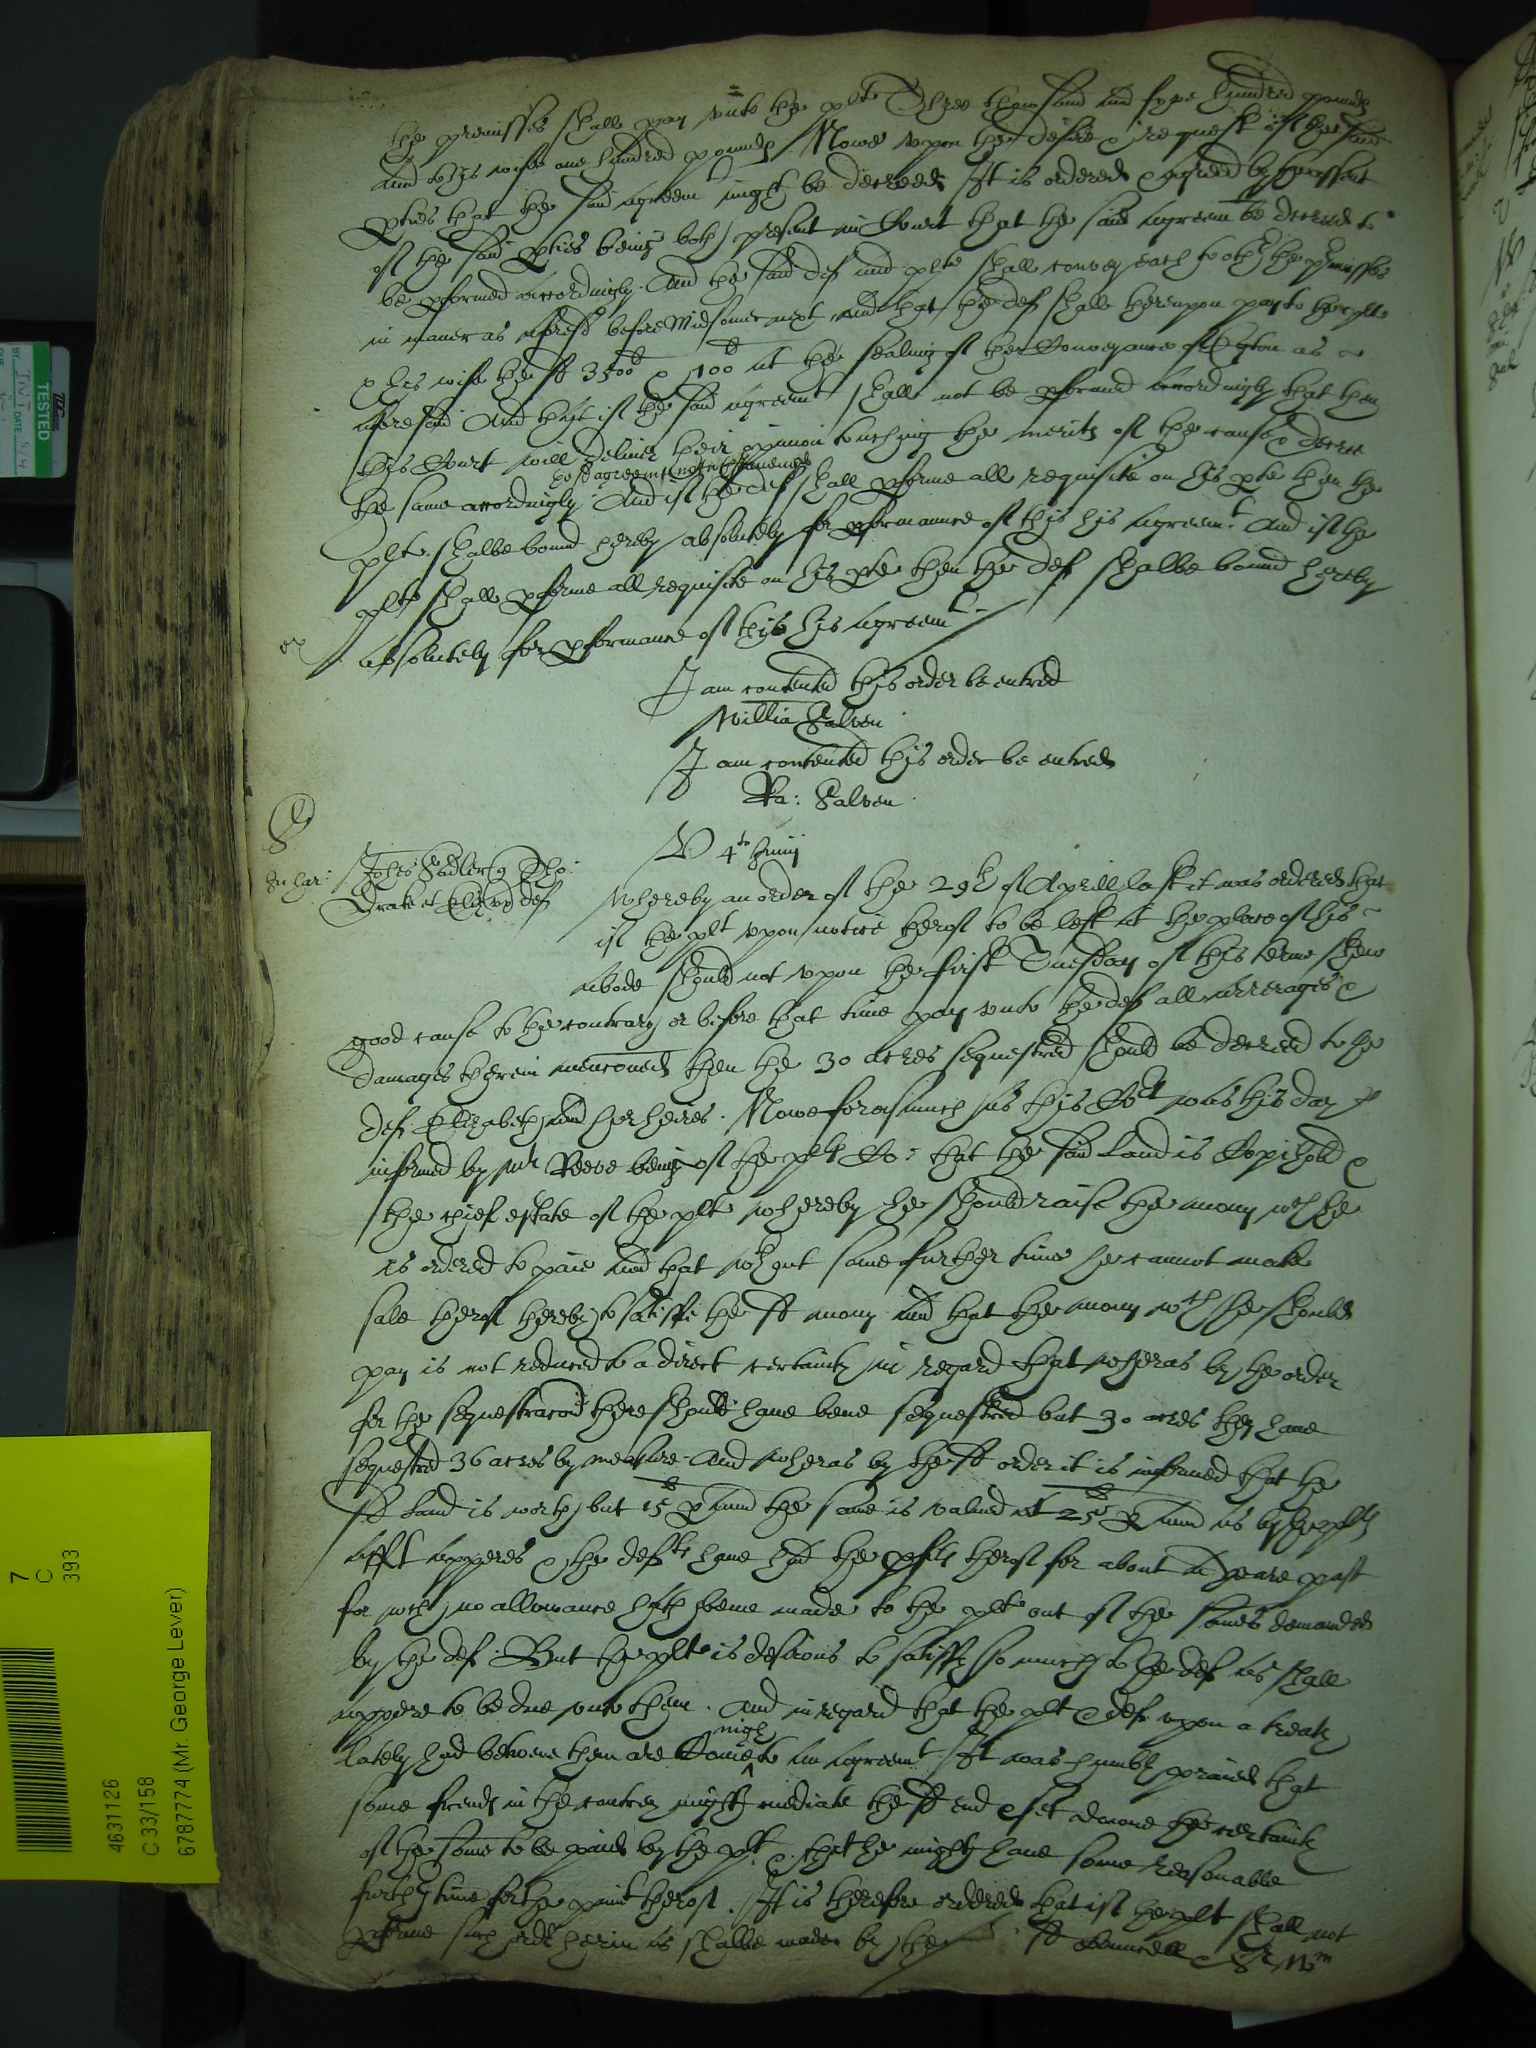 the premisses shall pay unto the plte Three thowsand and fyve hundred pounds
and to his wife one hundred pounds. Nowe upon the desire & request of the said
pties that the said agreemt might be decreed It is ordered & agreed by thassent
of the said pties being both present in Court that the said agreemt be decreed to
be pformed accordingly. And the said def and plte shall convey each to other the pmisses
in maner as aforesd before Midsomer next and that the def shall thereupon pay to the plte
& his wife the sd 3500li & 100li at the sealing of the Conveyance of as
aforesaid And that if the said agreemt shall not be pformed accordingly that then
this Court will deliver their opinion touching the merits of the cause & decree
the same accordingly. And if the def shall pforme all requisite on his pte then the
plte shalbe bound hereby absolutely for pformance of this his agreemt. And if the
plte shall pforme all requisite on his pte then the def shalbe bound hereby
absolutely for pformance of this his agreemt
I am contented this order be entred
Willia Calven
I am contented this order be entred
Ra: Calven
4to Junij
Johes Sadler q Tho:
Drake et Eliz ux def
Whereby an order of the 29th of Aprill last it was ordered that
if the plt upon notice therof to be left at the place of his
abode should not upon the first Tuesday of this terme shew
good cause to the contrary or before that time pay unto the def all arrerages &
damages therein mencioned then the 30 acres sequestred should be decreed to the
def Elizabeth and her heires. Nowe forasmuch as this Cot was this day
informed by Mr Reeve being of the plts Co: that the said Land is Copihold &
the chief estate of the plte whereby he should raise the mony wch he
is ordered to paie and that wthout some further time he cannot make
sale therof therby to satisfie the sd mony and that the mony wch he should
pay is not reduced to a direct certainty in regard that wheras by the order
for the sequestracon there should have bene sequestred but 30 acres they have
sequestred 36 acres by measure. And wheras by the sd order it is informed that the
sd Land is worth but 15li p ann the same is valued at 25li p ann as by the plts
afft apperes & the defts have had the pfits therof for about a yeare past
for which no allowance hath beene made to the plte out of the somes demanded
by the def. But the plte is desirous to satisfy so much to the def as shall
appere to be due unto them. And in regard that the plt & def upon a treaty
lately had betweene them are Come nigh to an agreemt It was humbly praied that
some frends in the contrey might mediate the sd end & set downe the certainty
of the some to be paid by the plt & that he might have some reasonable
further time for the paimt therof. It is therefore ordered that if the plt shall not
pforme such order herin as shalbe made by the sd Councell & Sr Wm
TESTED
DATE
7
C
393
4631126
C 33/158
6787774 (Mr. George Lever)